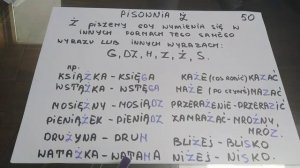 PISOWNIA Ż 50
Ż PISZEMY GDY WYMIENIA SIĘ W
INNYCH FORMACH TEGO SAMEGO
WYRAZU LUB INNYCH WYRAZACH:
G, DZ, H, Z, Ź, S.
np.
KSIĄŻKA - KSIĘGA KAŻE (coś robić) KAZAĆ
WSTĄŻKA - WSTĘGA MAŻE (po ) MAZAĆ
MOSIĘŻNY - MOSIĄDZ PRZERAŻENIE - PRZERAZIĆ
PIENIĄŻEK - PIENIĄDZ ZAMRAŻAĆ - MROŹNY,
MRÓZ.
DRUŻYNA - DRUH BLIŻEJ - BLISKO
WATAŻKA - WATAHA NIŻEJ - NISKO.